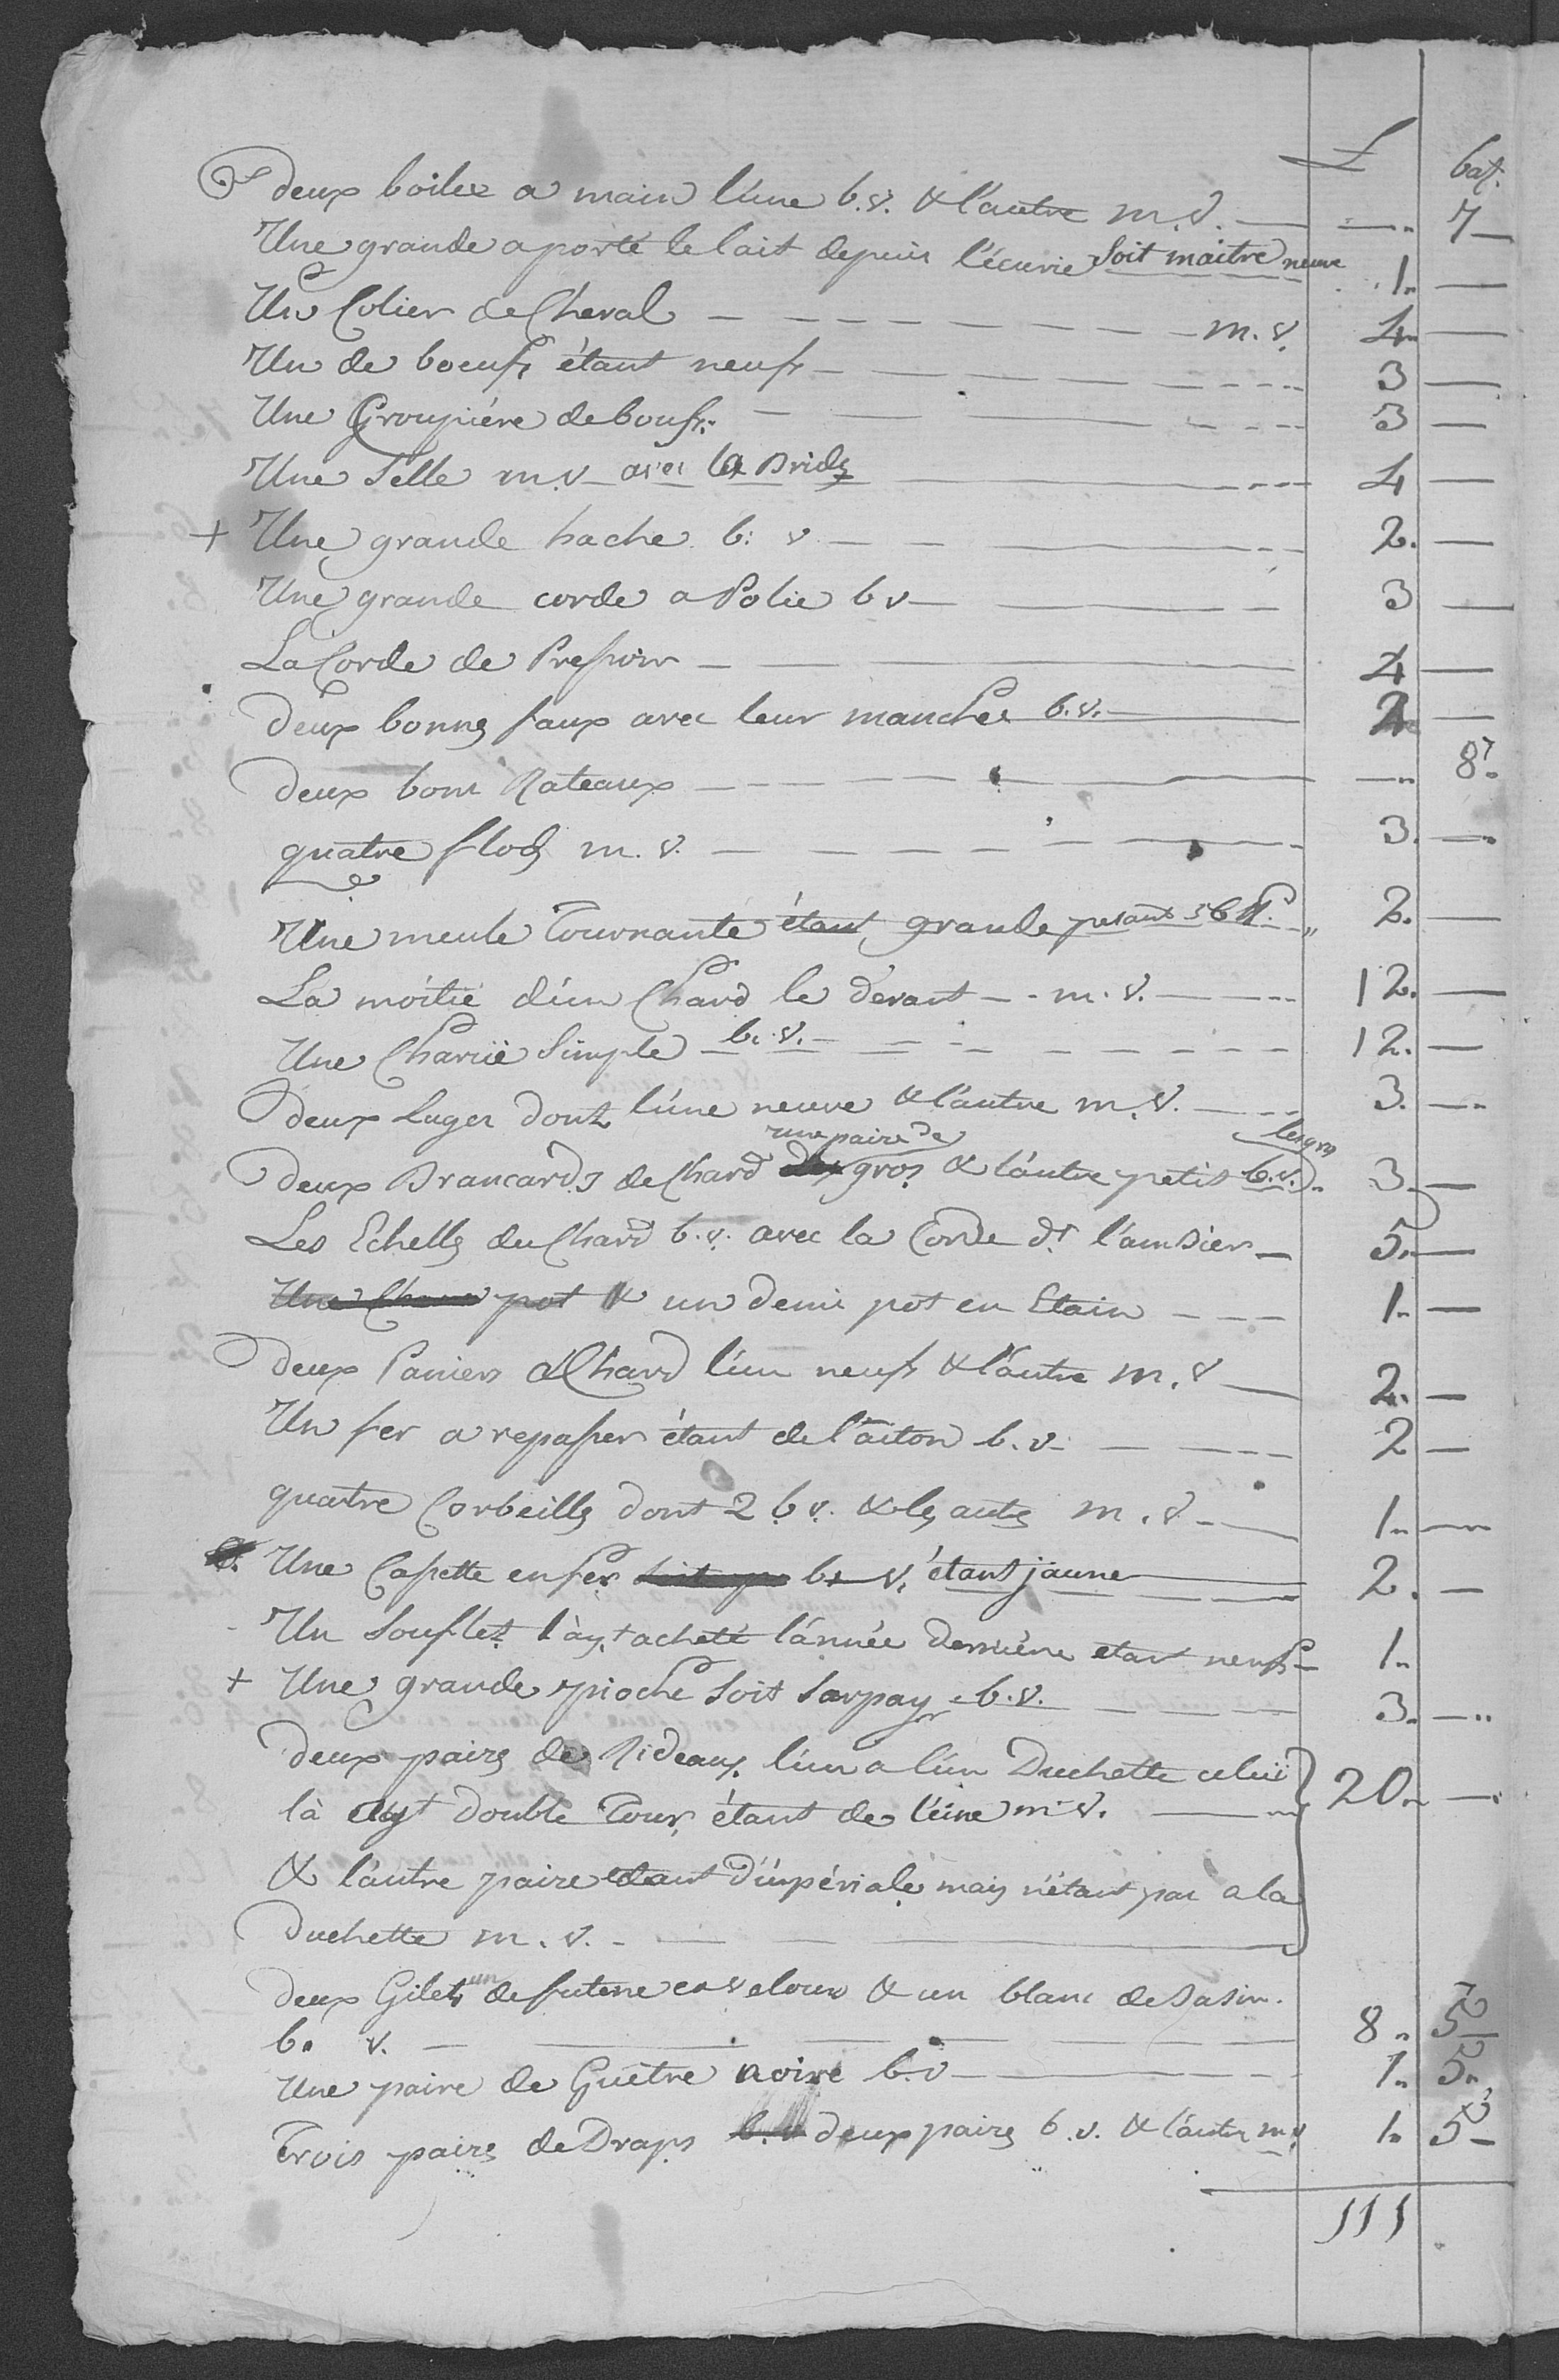 £ batz.
deux boilex a main l'une b.v. & l'autre m.v. — —.. 7—
Une grande a porté le lait depuis l'écurie soit maitre neuve 1.. —
Un Colier de Cheval — m.v. 4.. —
Un de boeufs étant neufs — 3 —
Une Groupiére de boufs.. — 3 —
Une Selle m.v avec la Bride — 4 —
+ Une grande hache b: v — 2. —
Une grande corde a Polie b v — 3 —
La Corde de Pressoir — 4 —
deux bonnes faux avec leur manches b.v. — 2 —
deux bons Rateaux — —.. 8..
quatre m.v. — 3. —..
Une meule Tournante étant grande pesant 56 ℔. 2. —
La moitié d'un Chard le dévant - - m.v. — 12. —
Une Chariië Simple b.v. — 12. —
deux Luges dont l'une neuve & l'autre m.v. — 3. —..
une paire de
deux Brancards de Chard gros & l'autre petis b.v. 3. —
Les Echelles du Chard b.v. avec la Corde dt l'ambier — 5.. —
Une pot & un demi pot en Etain — 1.. —
deux Paniers à Chard l'un neufs & l'autre m.v — 2.. —
Un fer a repasser étant de l'aiton b.v. — 2 —
quatre Corbeilles dont 2 b v. & les autres m.v — 1.. —
Une Casette en fer b. v. étant jaune — 2. —
Un Souflet l'ayt acheté l'année derniére etant neufs — 1..
+ Une grande pioche soit sarpay b.v. — 3. —..
deux paires de Rideaux l'un a l'un Duchette celui
là ayt double Tour, étant de l'eine m.v. — 20.. —
& l'autre paire étant d'impériale mais n'étant pas a la
duchette m.v. —
deux Gilets un de futene en velour & un blanc de Basin.
b. v. — 8.. 5—
Une paire de Guêtre noire b.v — 1.. 5..
Trois paires de Draps b.v deux paires b.v. & l'autre m.v 1.. 5—
111